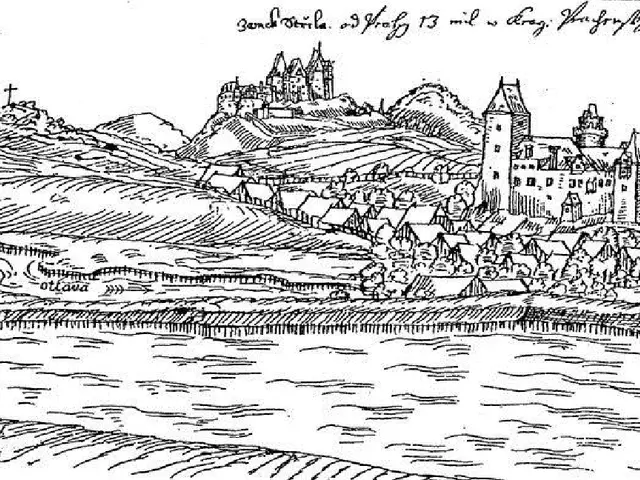 Zamek Střela. od Prahy 13 mil w Krag. Prachensk
otlava